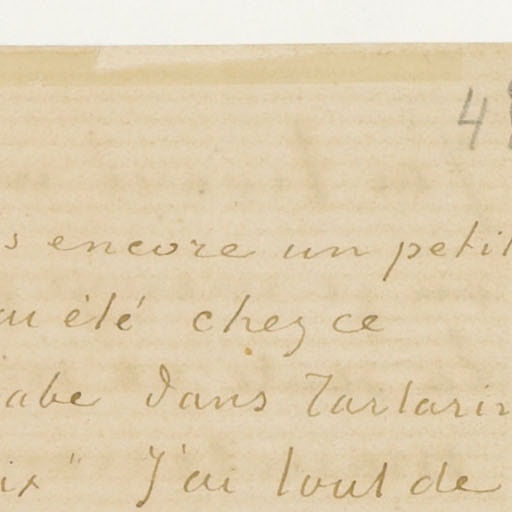 4
s encore un petit
ai été chez ce
abe dans Tartarin
ix" J'ai tout de